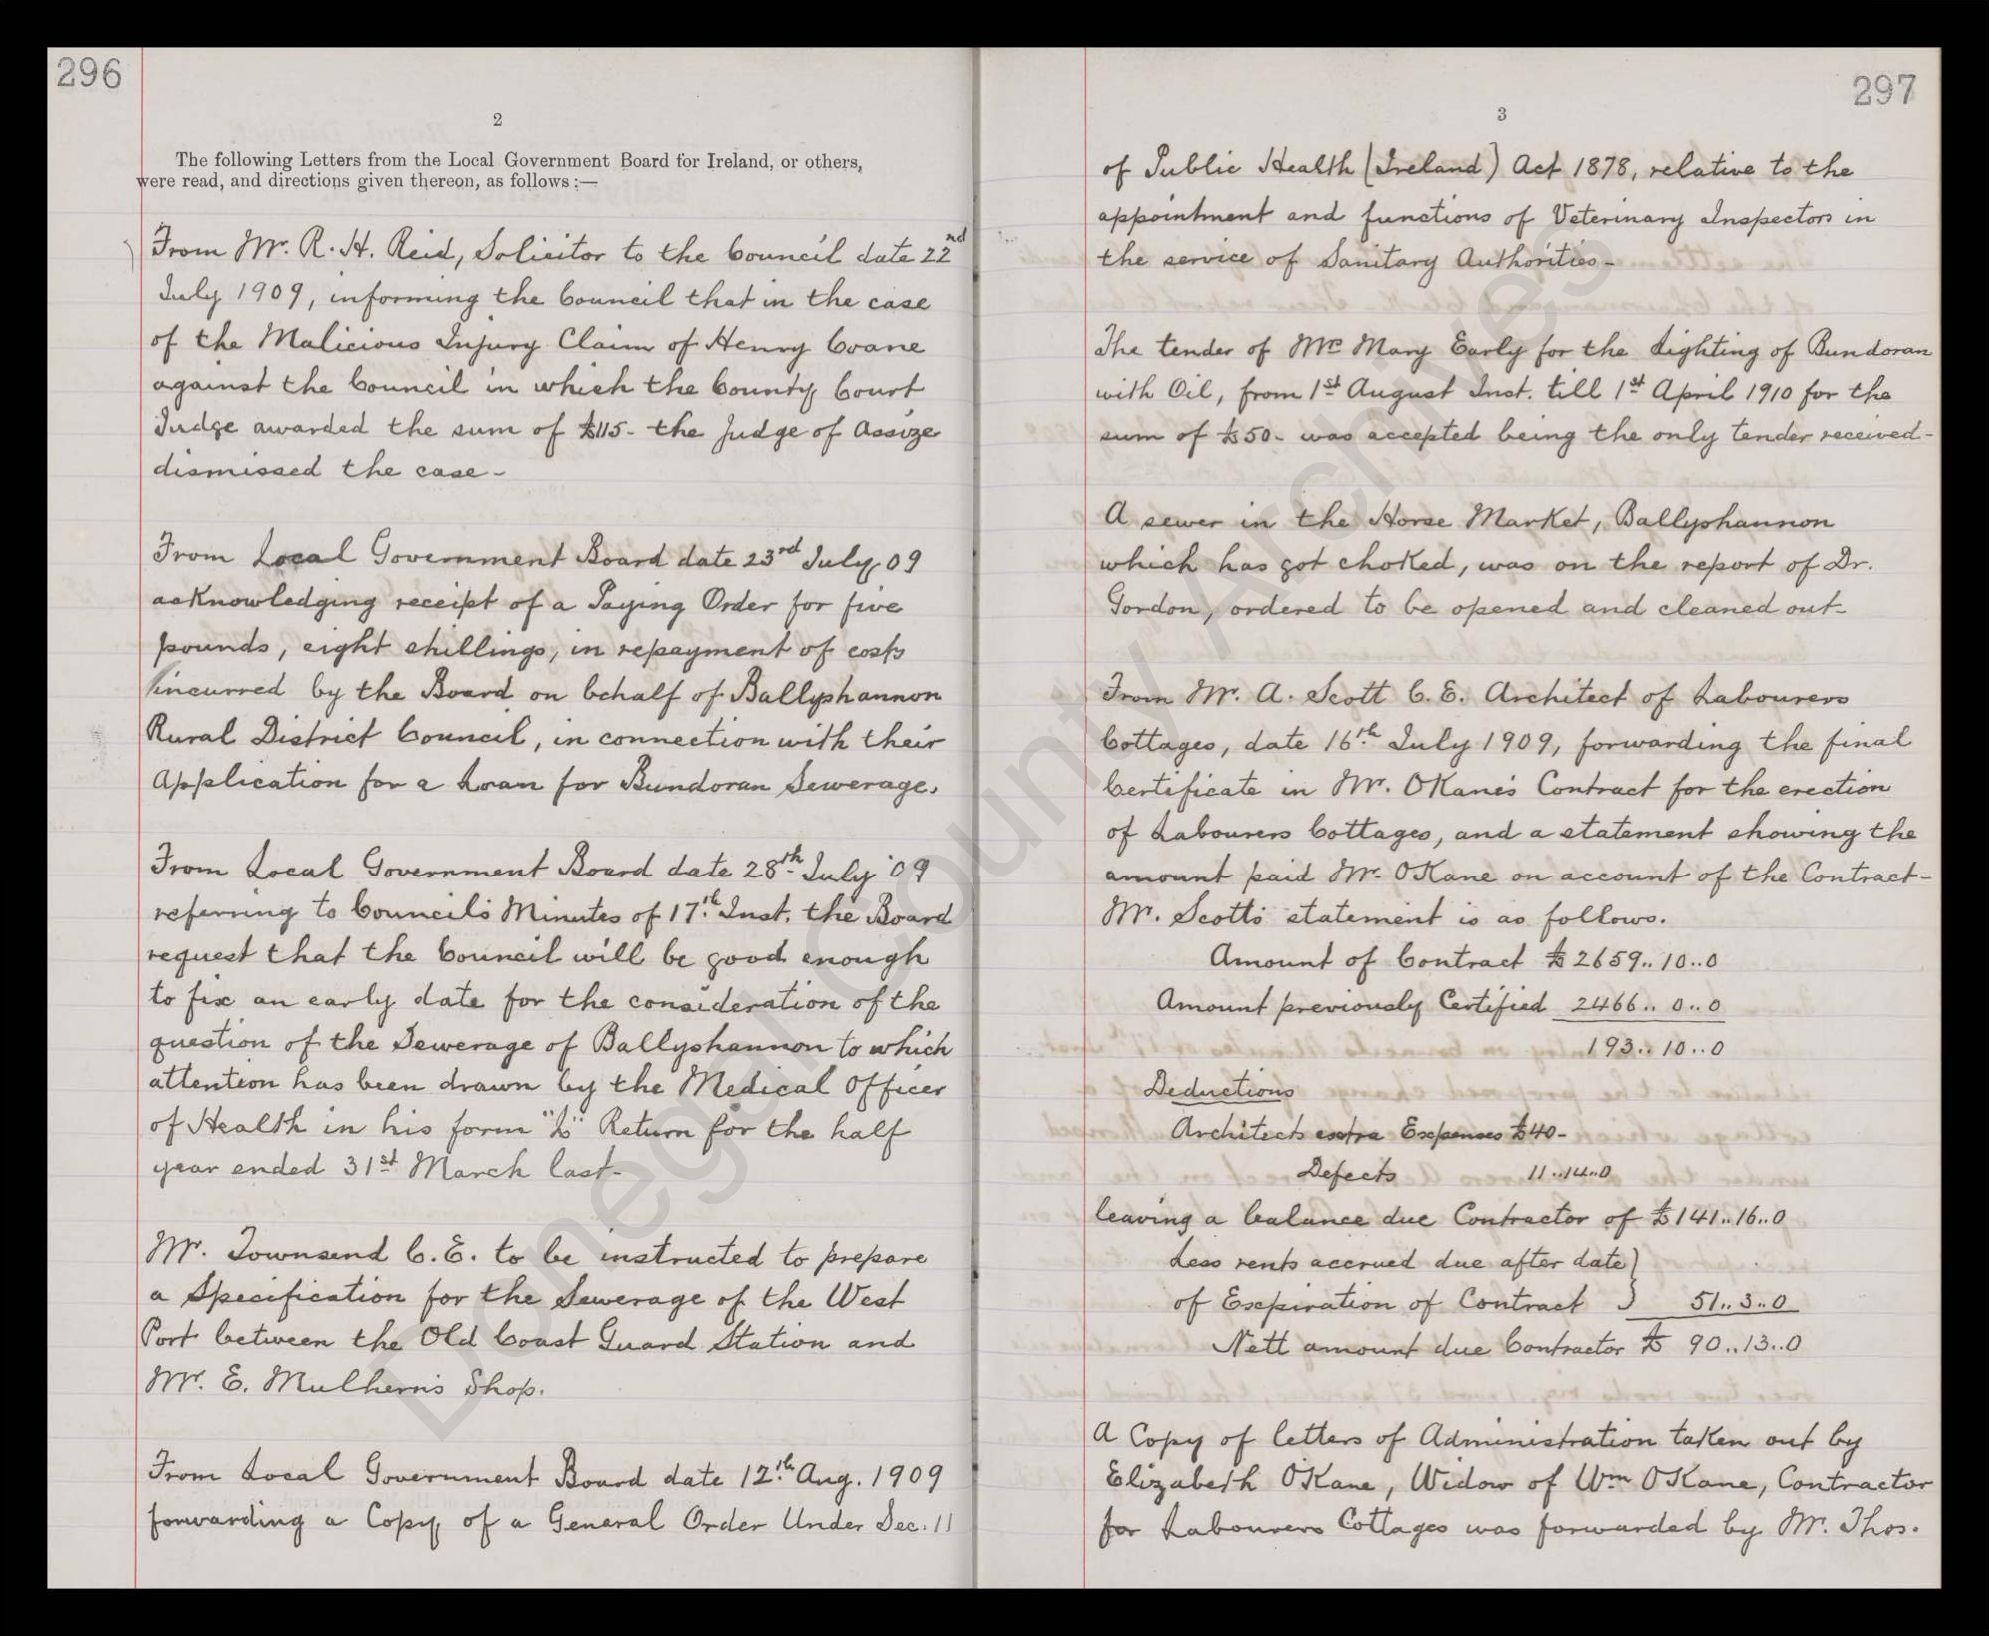 296
2
The following Letters from the Local Government Board for Ireland, or others,
were read, and directions given thereon, as follows :—
From Mr. R. H. Reid, Solicitor to the Council date 22nd
July 1909, informing the Council that in the case
of the Malicious Injury Claim of Henry Coane
against the Council in which the County Court
Judge awarded the sum of £115- the Judge of Assize
dismissed the case -
From Local Government Board date 23rd July, 09
acknowledging receipt of a Paying Order for five
pounds, eight shillings, in repayment of costs
incurred by the Board on behalf of Ballyshannon
Rural District Council, in connection with their
Application for a Loan for Bundoran Sewerage.
From Local Government Board date 28th July '09
referring to Council's Minutes of 17th Inst. the Board
request that the Council will be good enough
to fix an early date for the consideration of the
question of the Sewerage of Ballyshannon to which
attention has been drawn by the Medical Officer
of Health in his form "L" Return for the half
year ended 31st March last-
Mr. Townsend C.E. to be instructed to prepare
a Specification for the Sewerage of the West
Port between the Old Coast Guard Station and
Mr. E. Mulhern's Shop.
From Local Government Board date 12th Aug. 1909
forwarding a Copy of a General Order Under Sec. 11
297
3
of Public Health (Ireland) Act 1878, relative to the
appointment and functions of Veterinary Inspectors in
the service of Sanitary Authorities-
The tender of Mrs Mary Early for the Lighting of Bundoran
with Oil, from 1st August Inst. till 1st April 1910 for the
sum of £50- was accepted being the only tender received-
A sewer in the Horse Market, Ballyshannon
which has got choked, was on the report of Dr.
Gordon, ordered to be opened and cleaned out-
From Mr. A. Scott C.E. Architect of Labourers
Cottages, date 16th July 1909, forwarding the final
Certificate in Mr. O'Kane's Contract for the erection
of Labourers Cottages, and a statement showing the
amount paid Mr. O'Kane on account of the Contract-
Mr. Scott's statement is as follows.
Amount of Contract £2659..10..0
Amount previously Certified 2466..0..0
193..10..0
Deductions
Architects extra Expenses £40-
Defects 11..14..0
leaving a balance due Contractor of £141..16..0
Less rents accrued due after date }
of Expiration of Contract } 51..3..0
Nett amount due Contractor £ 90..13..0
A Copy of letters of Administration taken out by
Elizabeth O'Kane, Widow of Wm O'Kane, Contractor
for Labourers Cottages was forwarded by Mr. Thos.
Donegal County Archives